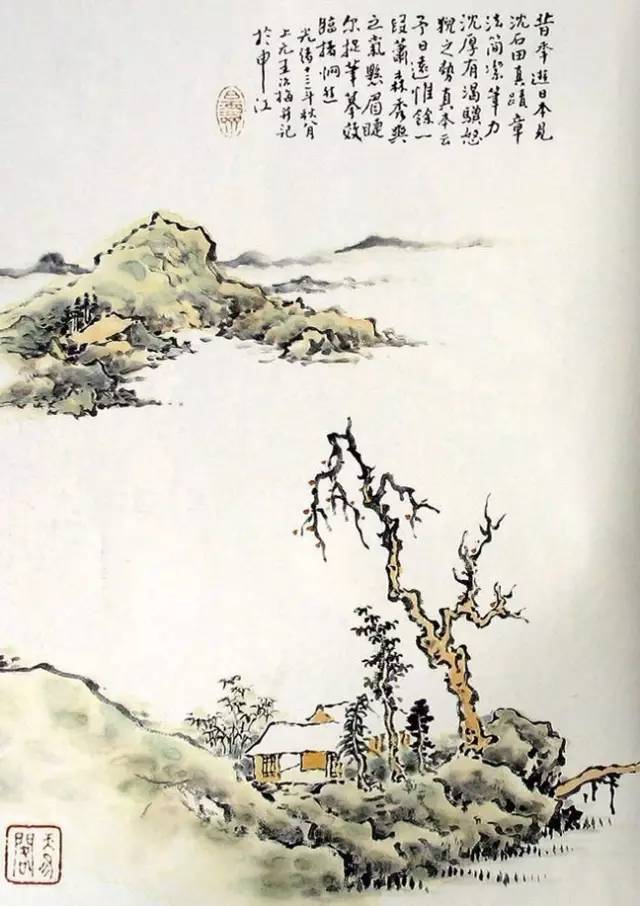 昔奉遊日本見
沈石田真蹟章
法簡潔筆力
沈厚有渴驥怒
猊之勢真本云
予日遠惟餘一
段蕭森秀爽
之氣懸眉睫
尔捉筆摹效
臨楮惘然
光緒十三年秋八月
上元王冶梅并記
於申江